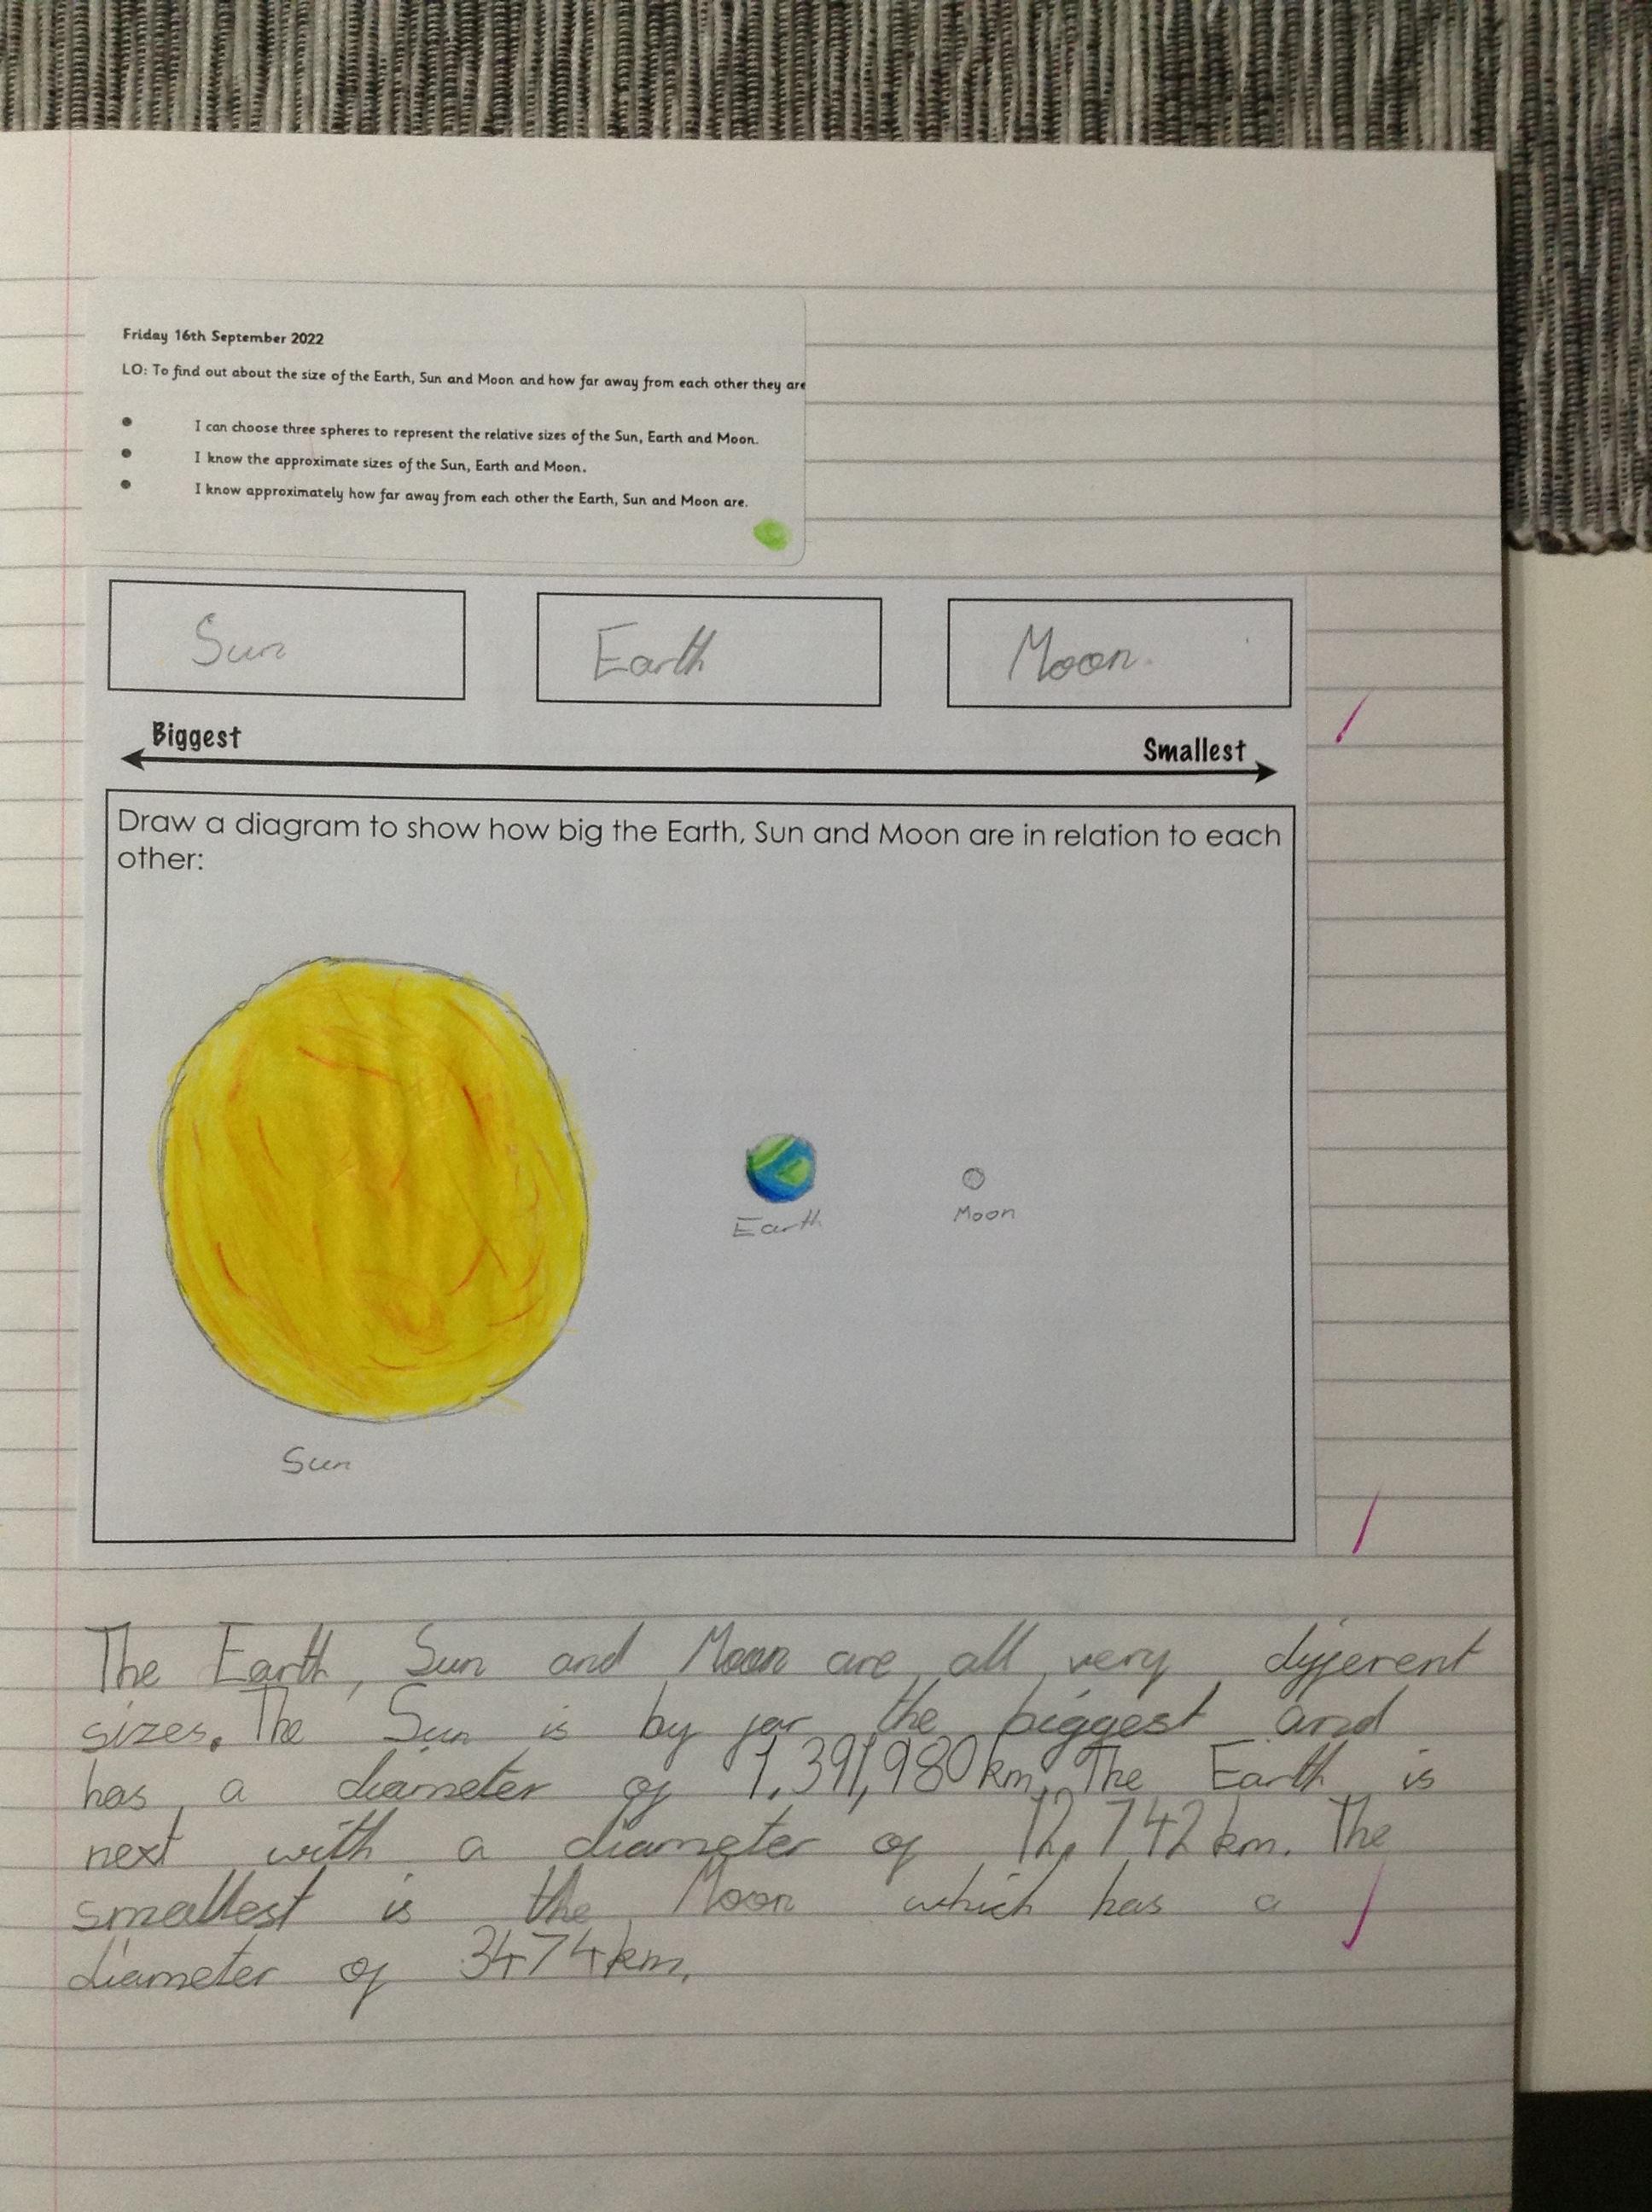 Friday 16th September 2022
LO: To find out about the size of the Earth, Sun and Moon and how far away from each other they are
• I can choose three spheres to represent the relative sizes of the Sun, Earth and Moon.
• I know the approximate sizes of the Sun, Earth and Moon.
• I know approximately how far away from each other the Earth, Sun and Moon are.
Sun
Earth
Moon.
Biggest
Smallest
Draw a diagram to show how big the Earth, Sun and Moon are in relation to each
other:
Earth
Moon
Sun
The Earth, Sun and Moon are all very different
sizes. The Sun is by far the biggest and
has a diameter of 1,391,980km. The Earth is
next with a diameter of 12,742km. The
smallest is the Moon which has a
diameter of 3474km.